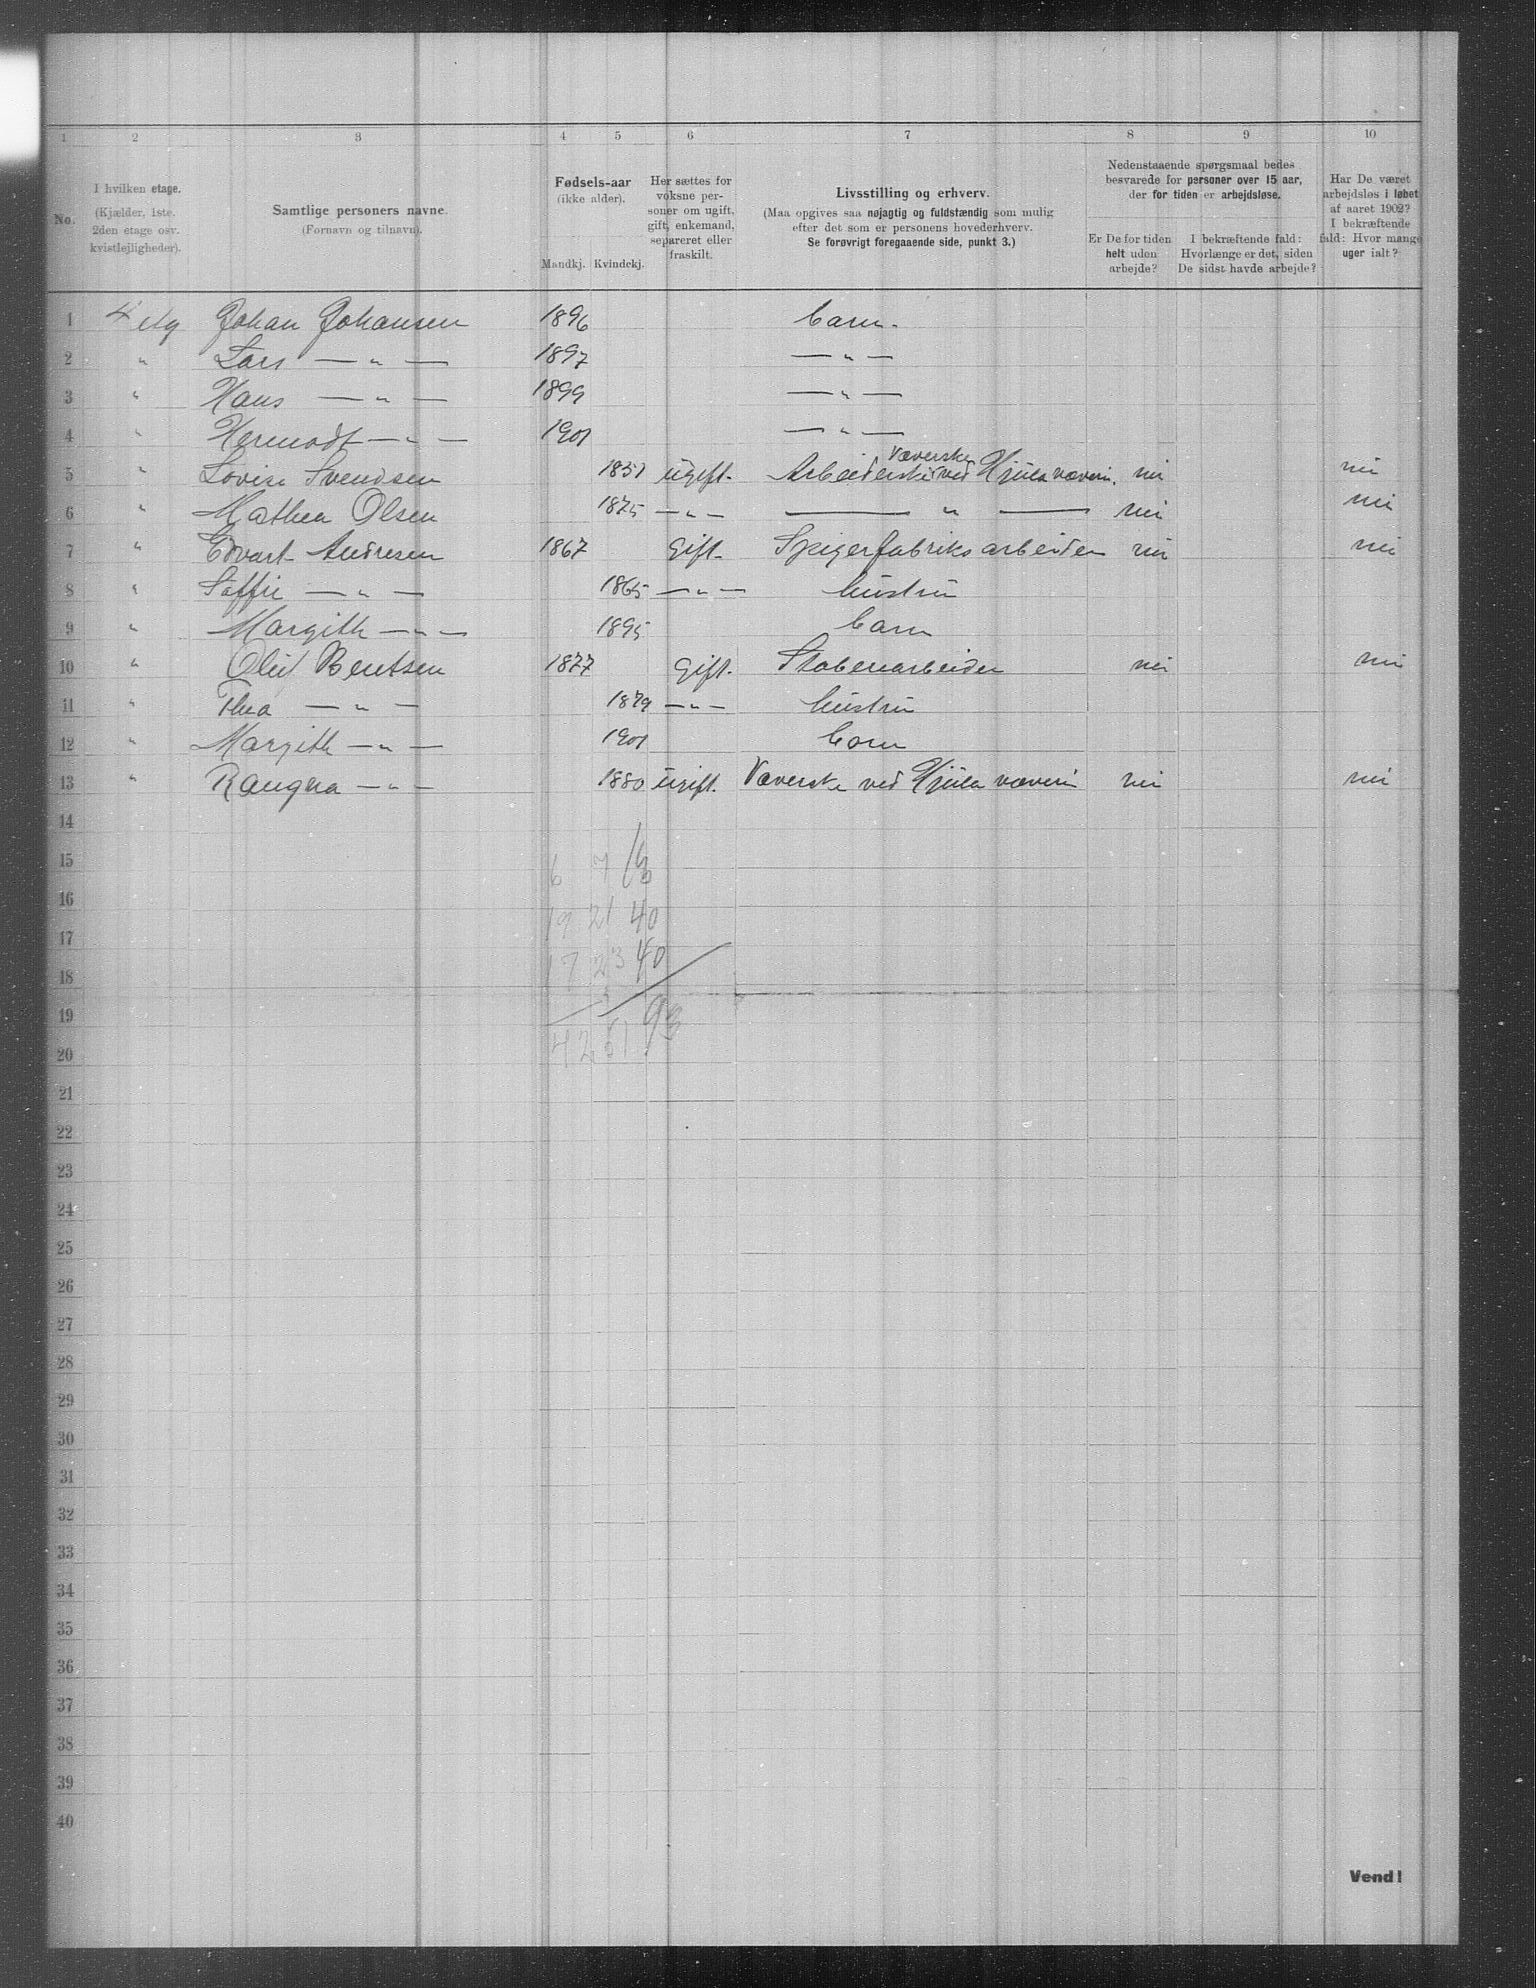 1 2 3 4 5 6 7 8 9 10
No.
I hvilken etage.
(Kjælder, 1ste.
2den etage osv.
kvistlejligheder).
Samtlige personers navne.
(Fornavn og tilnavn).
Fødsels-aar
(ikke alder).
Mandkj. Kvindekj.
Her sættes for
voksne per-
soner om ugift,
gift, enkemand,
separeret eller
fraskilt.
Livsstilling og erhverv.
(Maa opgives saa nøjagtig og fuldstændig som mulig
efter det som er personens hovederhverv.
Se forøvrigt foregaaende side, punkt 3.)
Nedenstaaende spørgsmaal bedes
besvarede for personer over 15 aar,
der for tiden er arbejdsløse.
Er De for tiden
helt uden
arbejde?
I bekræftende fald:
Hvorlænge er det, siden
De sidst havde arbejde?
Har De været
arbejdsløs i løbet
af aaret 1902?
I bekræftende
fald: Hvor mange
uger ialt?
1 4 etg Johan Johansen 1896 barn.
2 " Lars — " — 1897 — " —
3 " Hans — " — 1899 — " —
4 " Hermodt — " — 1901 — " —
Væverske
5 " Lovise Svendsen 1851 ugift. Arbeiderske ved Hjula væveri. nei nei
6 " Mathea Olsen 1875 — " — — " — nei nei
7 " Edvart Andresen 1867 Gift. Spigerfabriksarbeider nei nei
8 " Saffie — " — 1865 — " — hustru
9 " Margith — " — 1895 barn
10 " Oluf Bentsen 1877 Gift. Stoberiarbeider nei nei
11 " Thea — " — 1879 — " — hustru
12 " Margith — " — 1901 barn
13 " Rangna — " — 1880 ugift. Væverske ved Hjula væveri nei nei
14
15 6 7 13
16 19 21 40
17 17 23 40
18
19 93
20 42 51
21
22
23
24
25
26
27
28
29
30
31
32
33
34
35
36
37
38
39
40
Vend!